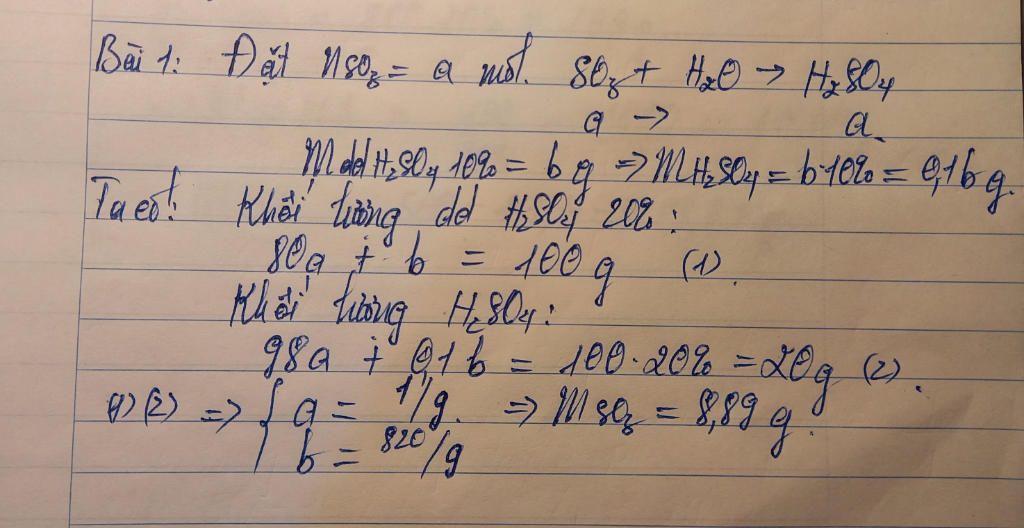 Bài 1: Đặt nSO₃ = a mol. SO₃ + H₂O → H₂SO₄
a → a
mdd H₂SO₄ 10% = b g ⇒ mH₂SO₄ = b·10% = 0,1b g.
Ta có: Khối lượng dd H₂SO₄ 20%:
80a + b = 100 g (1)
Khối lượng H₂SO₄:
98a + 0,1b = 100·20% = 20g (2).
(1)(2) ⇒ { a = 1/9. ⇒ mSO₃ = 8,89 g.
b = 820/9